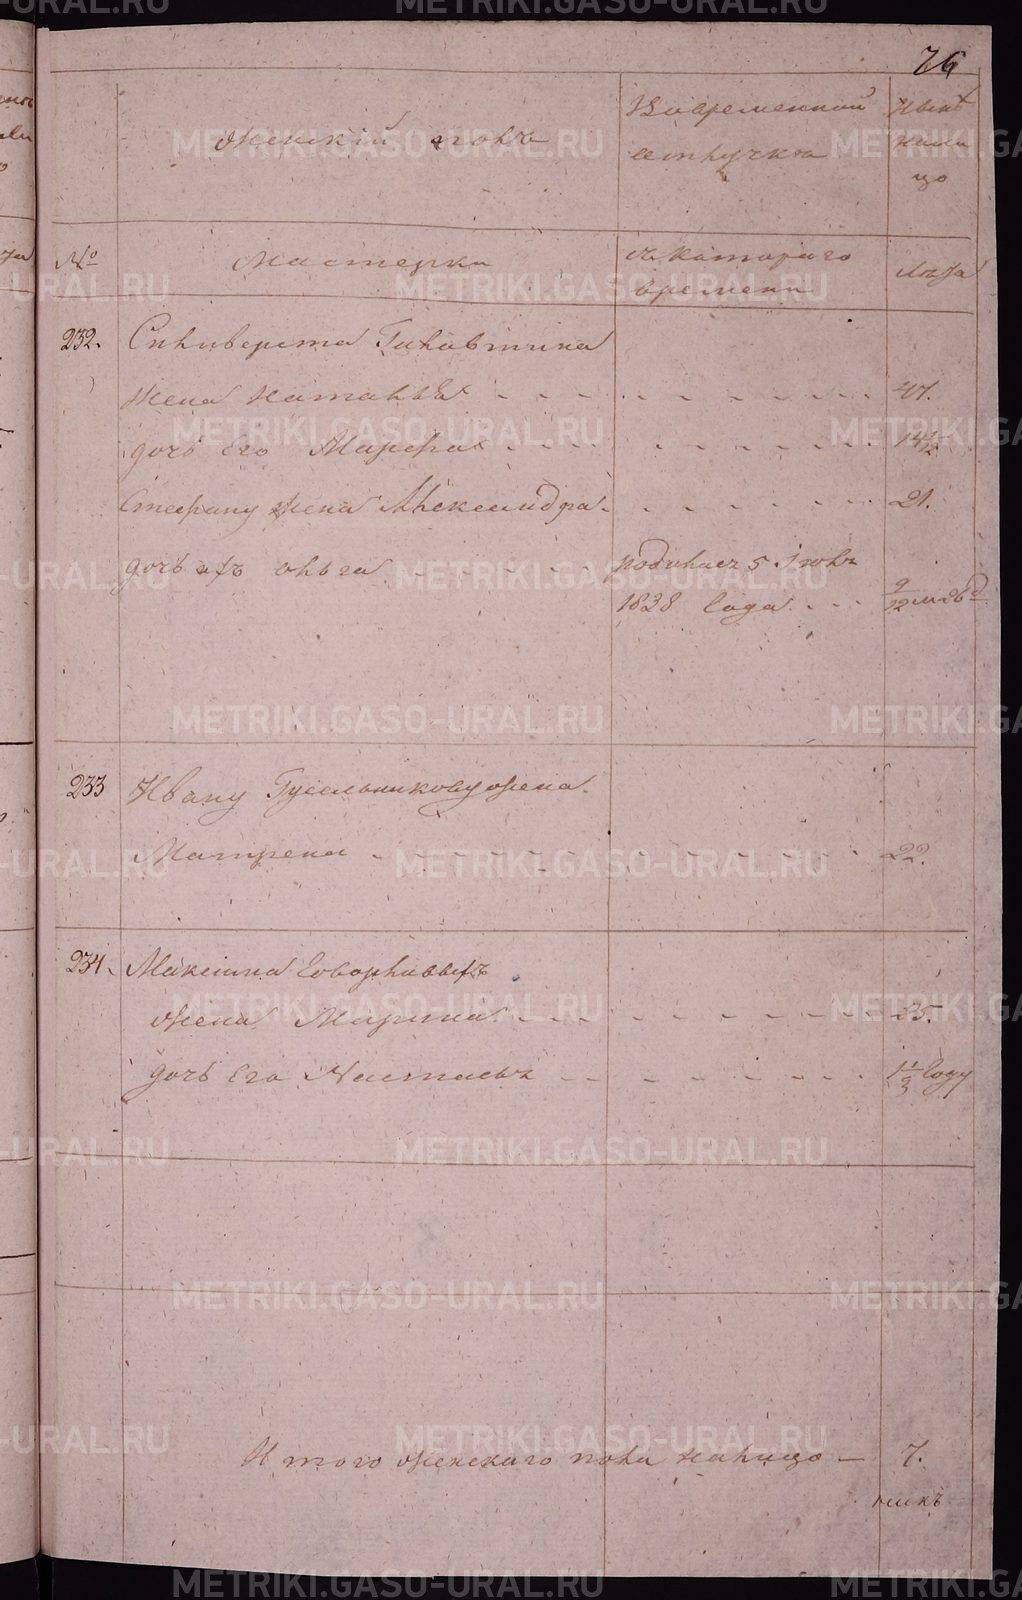 76
женскiй полъ
Во временной
отлучке
Ныне
нали
цо
№
Мастерки
с котораго
времени
Лета
232. Силиверста Голавтина
жена Наталья 47.
дочь его Марфа 14 1/2
Степану жена Александра 21.
дочь ихъ Ольга родилась 5 Iюня
1838 года 9/12 мсцовъ
233 Ивану Гусельникову жена
Матрена 22.
234. Максима
жена Марина 25.
дочь его Настасья 1 1/3 году
Итого женскаго пола налицо — 7.
METRIKI.GASO-URAL.RU